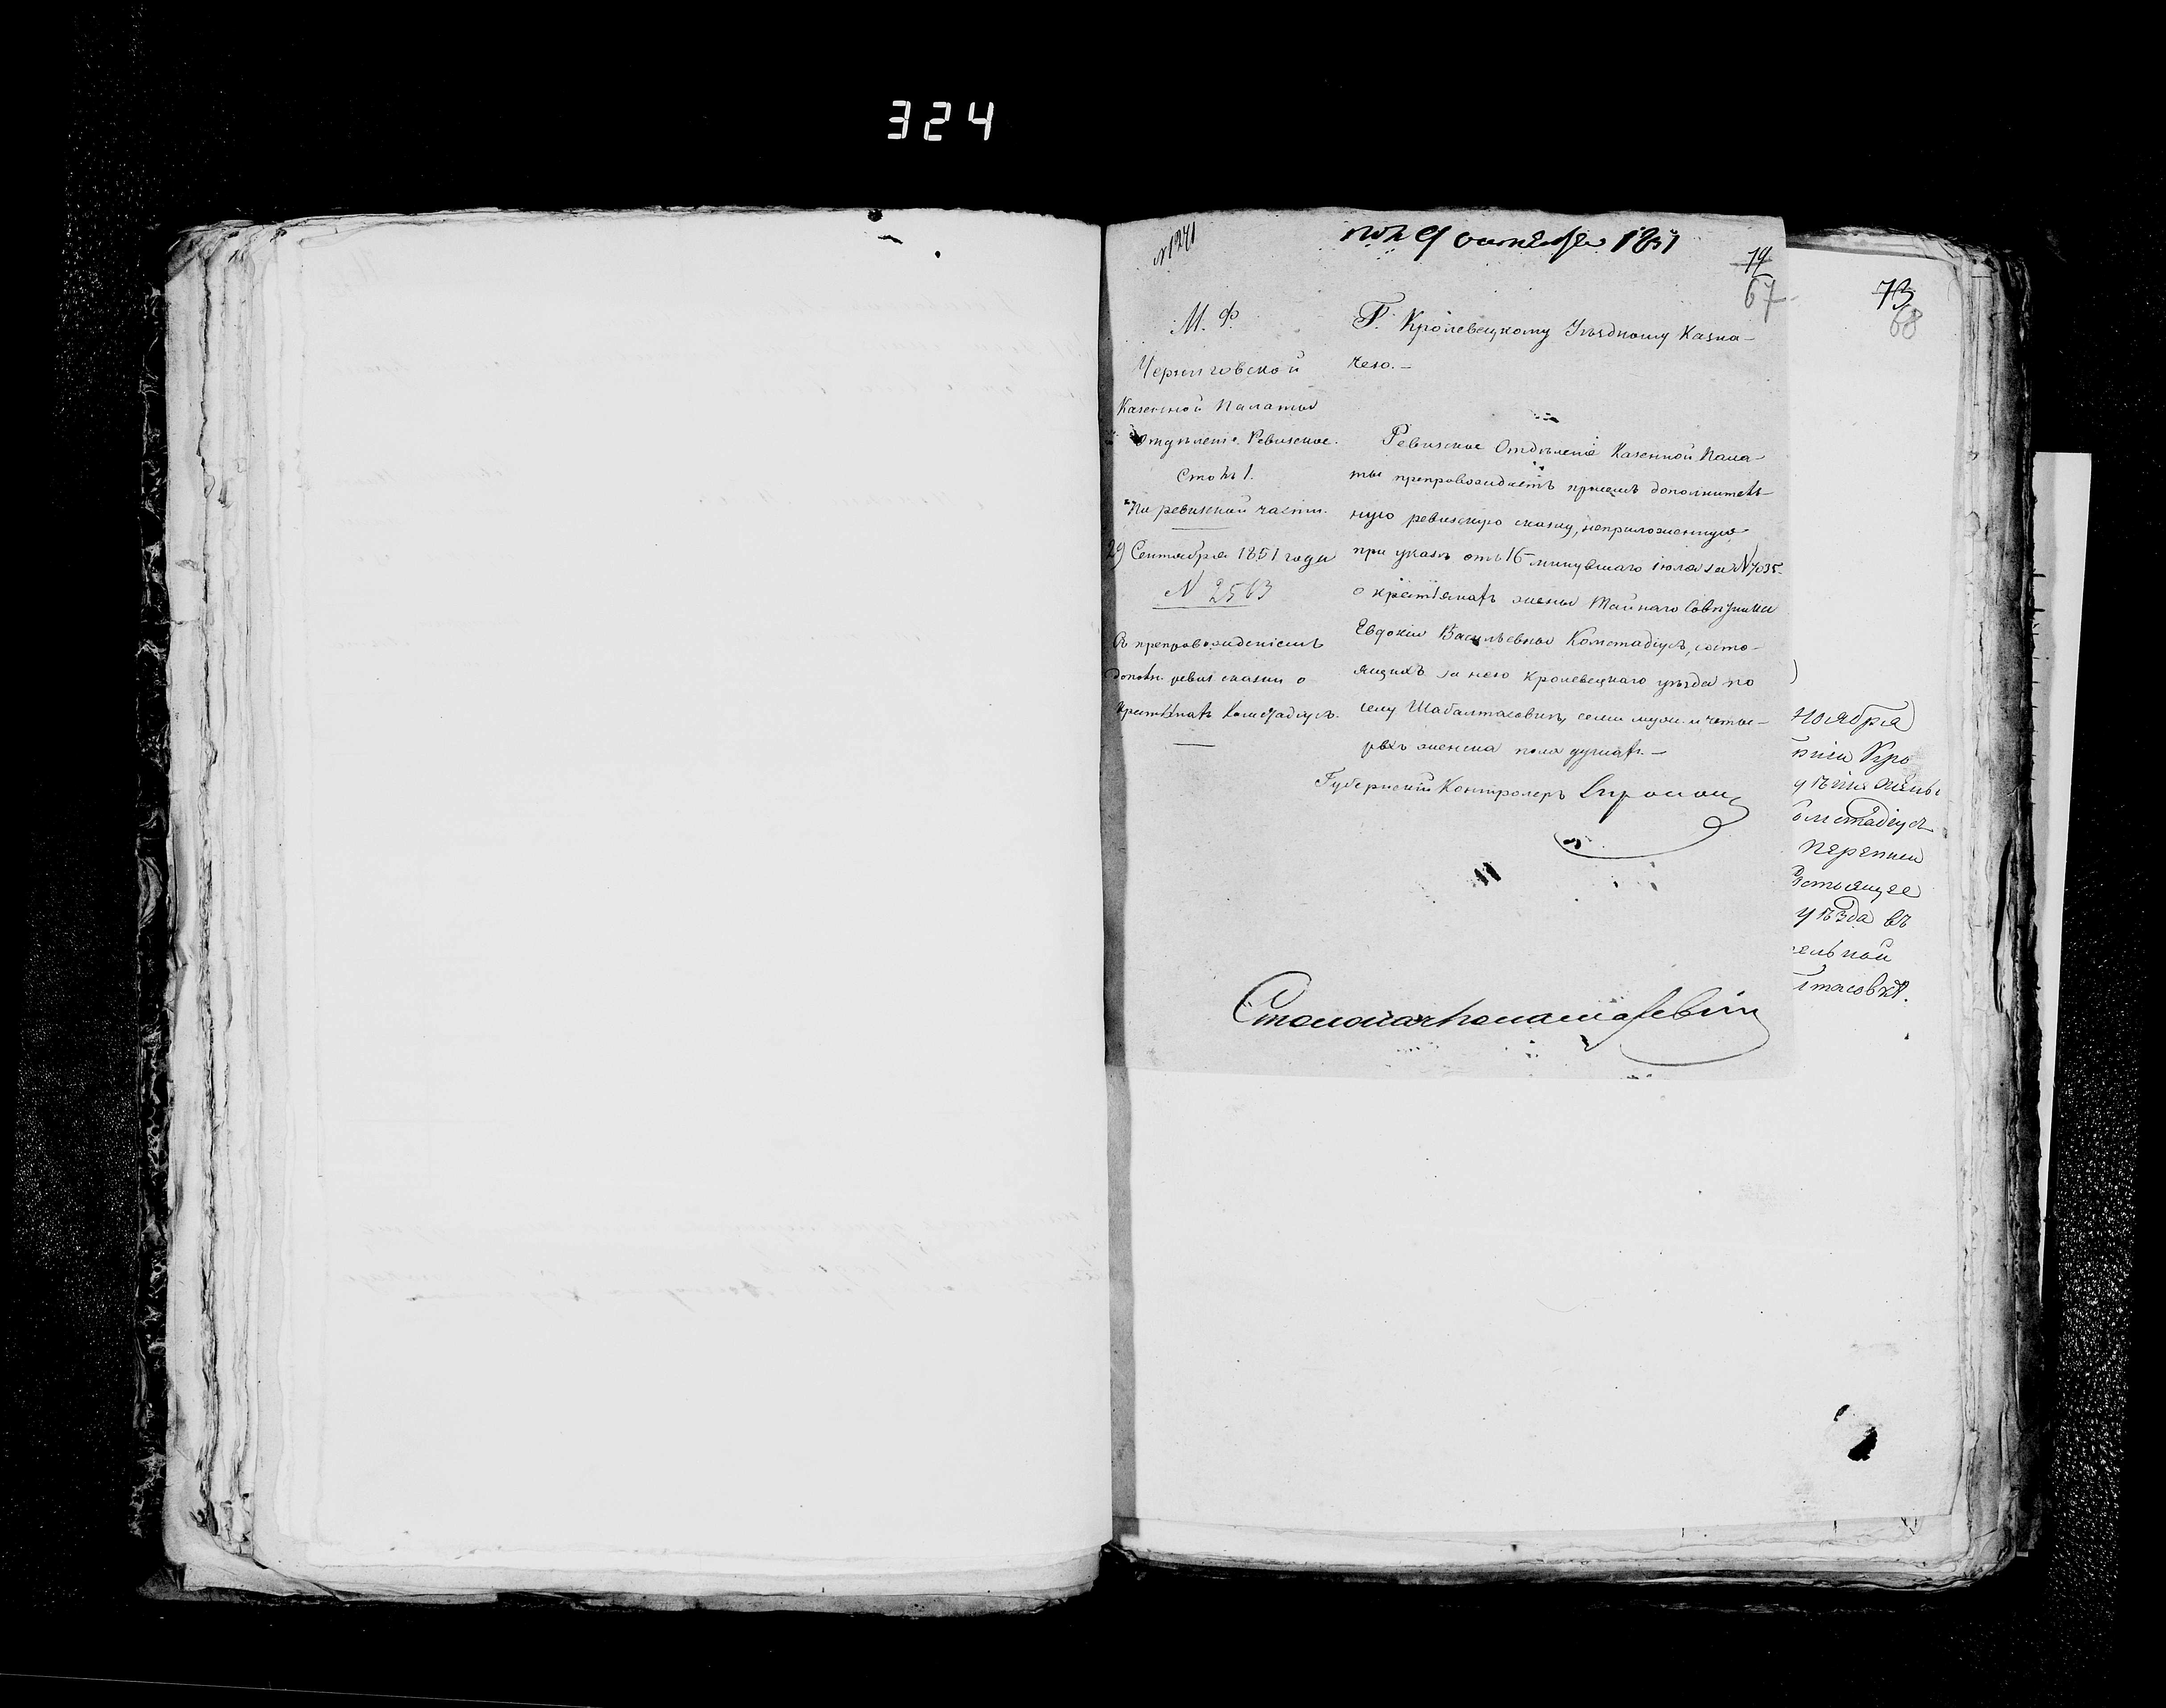 324
N 1241
пол 9 октября 1851
72
67
М. Ф.
Черниговской
Казенной Палаты
Отдѣленiе Ревизское.
Столъ 1.
По ревизской части.
29 Сентября 1851 года
N 2563
Съ препровожденiемъ
дополн. ревиз сказки о
крестьянахъ Комстадiусъ.
Г. Кролевецкому Уѣздному Казна-
чею.-
Ревизское Отдѣленiе Казенной Пала-
ты препровождаетъ присемъ дополнитель-
ную ревизскую сказку, неприложенную
при указѣ отъ 16 минувшаго iюля за N 7035
о крестьянахъ жены Тайнаго Совѣтника
Евдокiи Васильевны Комстадiусъ, состо-
ящихъ за нею Кролевецкаго уѣзда по
селу Шабалтасовкѣ, семи муж. и четы-
рехъ женска пола душахъ.-
Губернскiй Контролеръ
73
68
Ноября
нiи Кро
жены
омстадiусъ
перепи
стоящее
уѣзда въ
ельной
тасовкѣ.